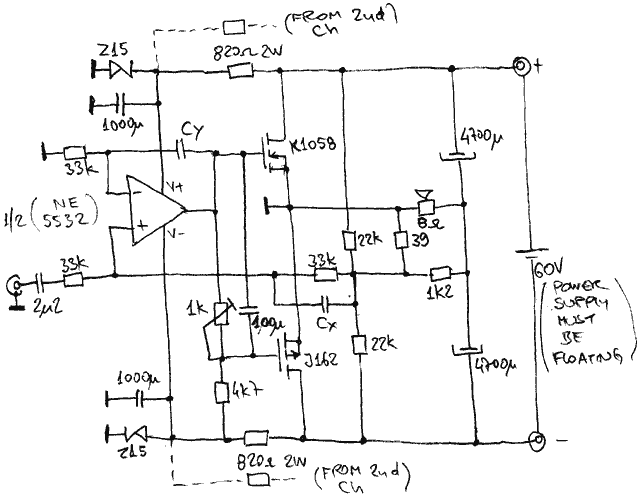 (FROM 2nd)
Ch
Z15
820Ω 2W
+
1000μ
Cy
K1058
4700μ
33k
V+
-
8Ω
1/2 (NE
5532)
+
V-
22k
39
33k
33k
1k2
60V
2μ2
(POWER
SUPPLY
MUST
BE
FLOATING)
1k
100μ
Cx
J162
22k
4700μ
1000μ
4k7
Z15
-
820Ω 2W
(FROM 2nd)
Ch